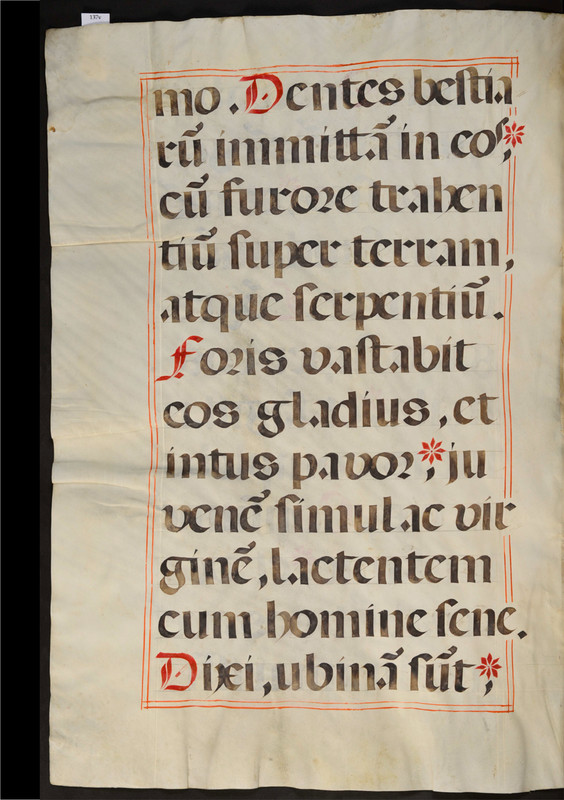 137v
mo. Dentes beſtia
rū immittā in eoſ;*
cū furore trahen
tiū ſuper terram,
atque ſerpentiū.
Foꝛis vaſtabit
eos gladius, et
intus pavoꝛ;* ju
venē ſimul ac vir
ginē, lactentem
cum homine ſene.
Dixi, ubinā ſūt;*